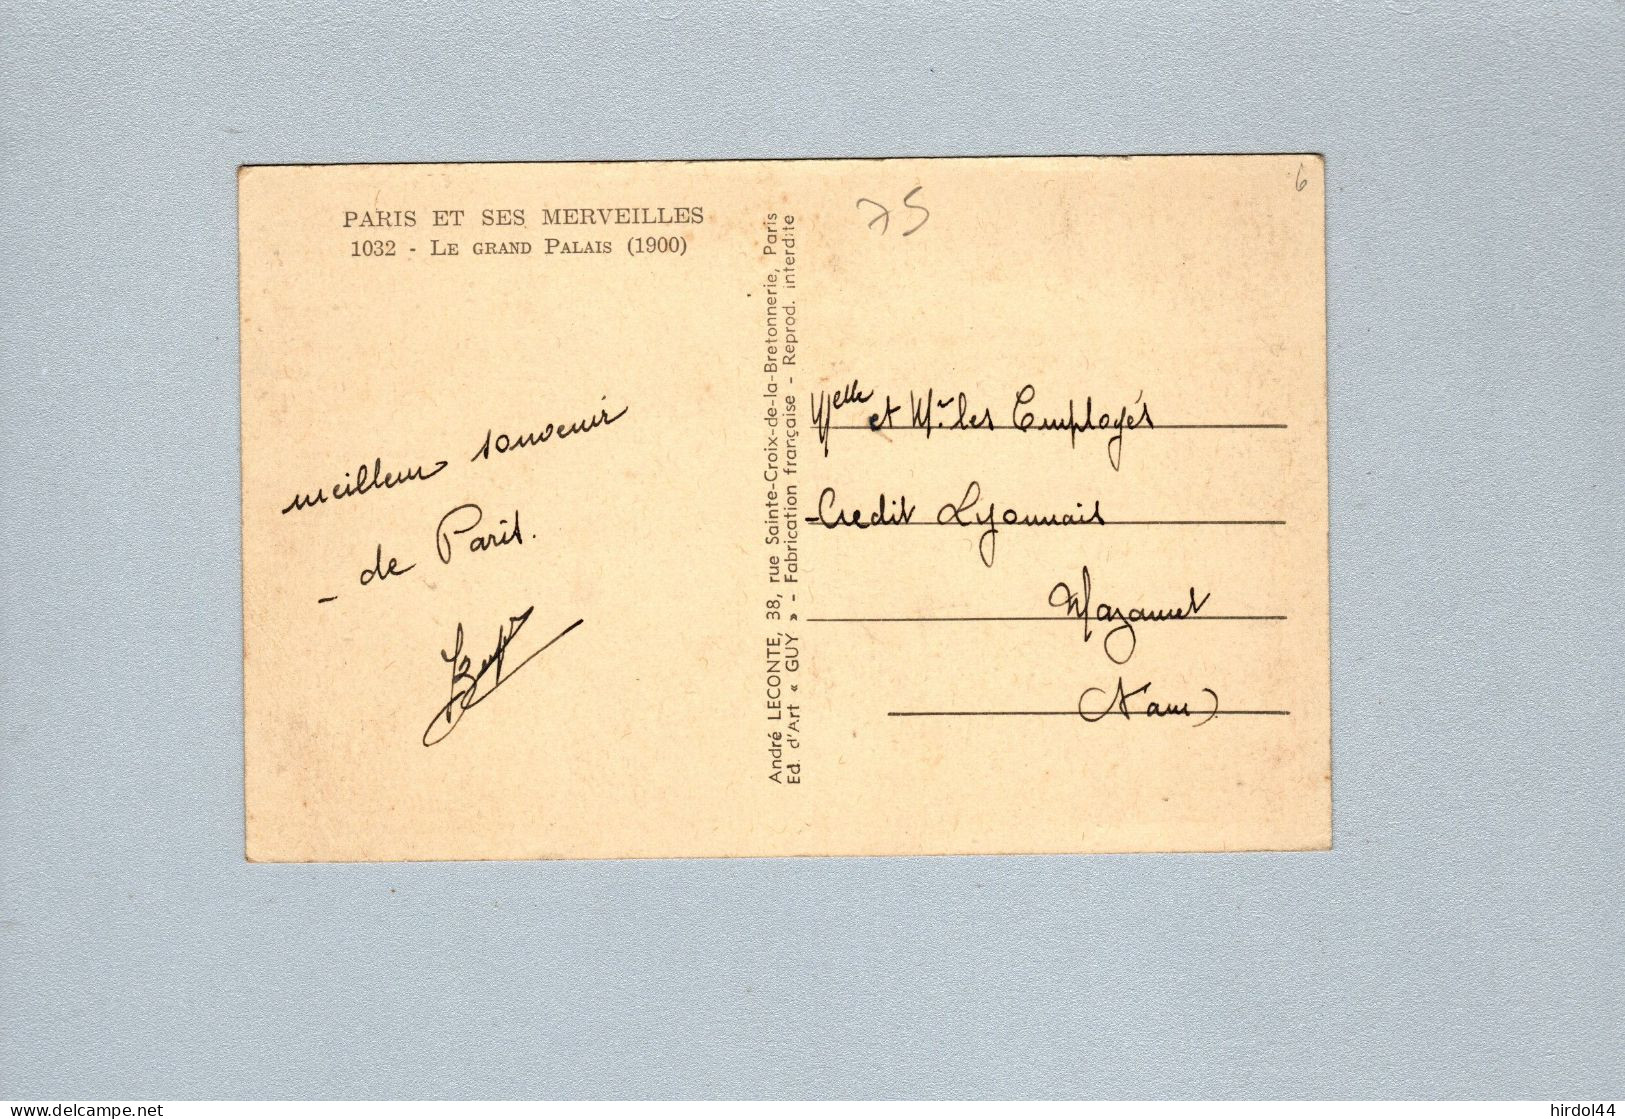 PARIS ET SES MERVEILLES
1032 - LE GRAND PALAIS (1900)
75
6
meilleur souvenir
de Paris.
André LECONTE, 38, rue Sainte-Croix-de-la-Bretonnerie, Paris
Ed. d'Art « GUY » - Fabrication française - Reprod. interdite
Melle et Mr les Employés
Credit Lyonnais
Mazamet
(Tarn)
www.delcampe.net
hirdol44